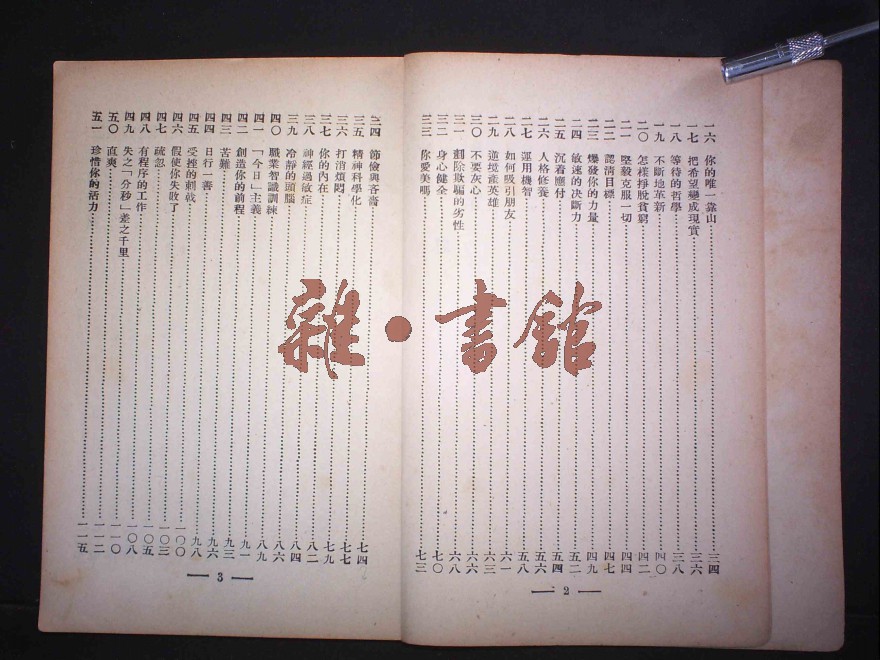 一六 你的唯一靠山 三四
一七 把希望變成現實 三六
一八 等待的哲學 三八
一九 不斷地革新 四〇
二〇 怎樣掙脫貧窮 四二
二一 堅毅克服一切 四四
二二 認清目標 四七
二三 爆發你的力量 四九
二四 敏速的决斷力 五二
二五 沉着應付 五四
二六 人格修養 五六
二七 運用機智 五八
二八 如何吸引朋友 六一
二九 逆境產英雄 六三
三〇 不要灰心 六六
三一 剷除欺騙的劣性 六八
三二 身心健全 七〇
三三 你愛美嗎 七三
— 2 —
三四 節儉與吝嗇 七四
三五 精神科學化 七七
三六 打消煩悶 七七
三七 你的內在 七九
三八 神經過敏症 八二
三九 冷靜的頭腦 八四
四〇 職業智識訓練 八六
四一 「今日」主義 八九
四二 創造你的前程 九一
四三 苦難 九三
四四 日行一善 九六
四五 受挫的刺戟 九八
四六 假使你失敗了 一〇〇
四七 疏忽 一〇三
四八 有程序的工作 一〇五
四九 失之「分秒」差之千里 一〇八
五〇 直爽 一一〇
五一 珍惜你的活力 一一五
— 3 —
雜·書館